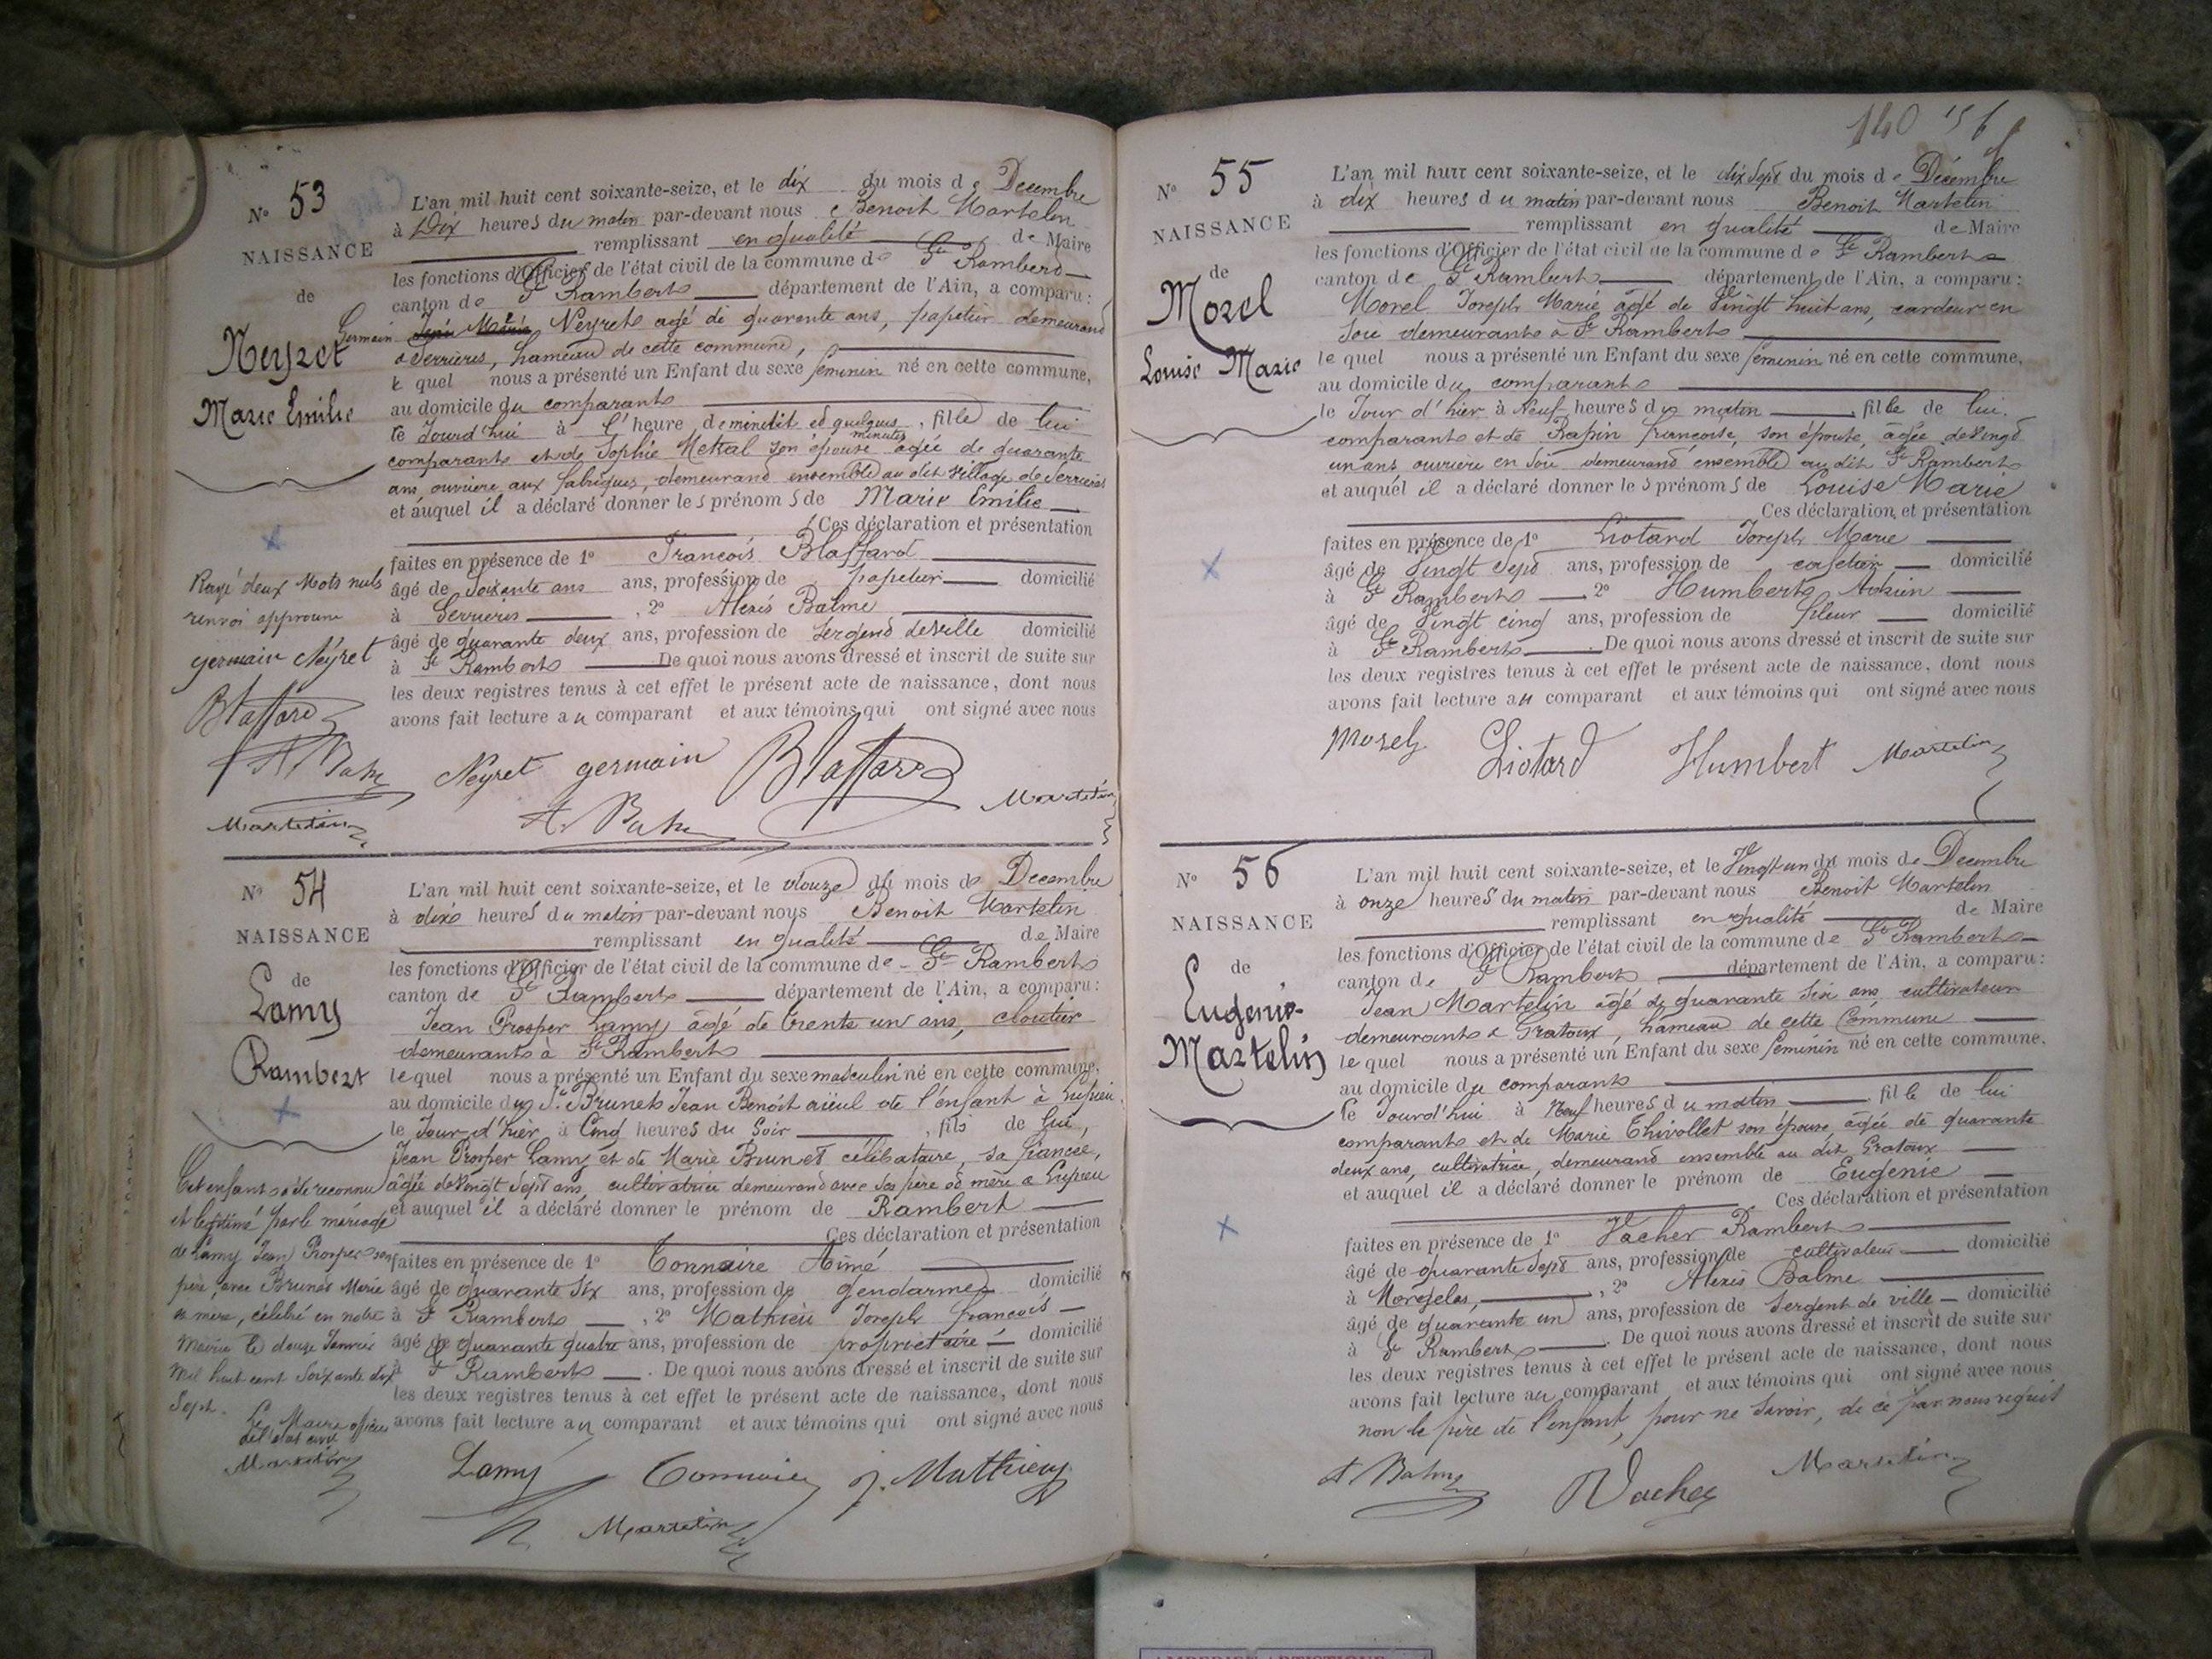 Nº 53
NAISSANCE
de
Neyret
Marie Emilie
L'an mil huit cent soixante-seize, et le dix du mois de Decembre
à Dix heures du matin par-devant nous Benoit Martelin
remplissant en qualité de Maire
les fonctions d'Officier de l'état civil de la commune de St Rambert
canton de St Rambert département de l'Ain, a comparu :
Germain Neyret agé de quarante ans, papetier demeurant
à Serrieres, hameau de cette commune,
le quel nous a présenté un Enfant du sexe féminin né en cette commune,
au domicile du comparant
le Jourd'hui à l'heure de minuit et quelques minutes, fille de lui
comparant et de Sophie son épouse agée de quarante
ans, ouvriere aux fabriques, demeurant ensemble au dit village de Serrieres
et auquel il a déclaré donner les prénoms de Marie Emilie
Ces déclaration et présentation
faites en présence de 1º Francois Blaffard
âgé de Soixante ans ans, profession de papetier domicilié
à Serrieres, 2º Alexis Balme
âgé de quarante deux ans, profession de Sergent de ville domicilié
à St Rambert De quoi nous avons dressé et inscrit de suite sur
les deux registres tenus à cet effet le présent acte de naissance, dont nous
avons fait lecture au comparant et aux témoins qui ont signé avec nous
Rayé deux Mots nuls
renvoi approuvé
germain Neyret
Blaffard
Martelin
Neyret germain Blaffard
Martelin
Nº 54
NAISSANCE
de
Lamy
Rambert
L'an mil huit cent soixante-seize, et le douze du mois de Decembre
à dix heures du matin par-devant nous Benoit Martelin
remplissant en qualité de Maire
les fonctions d'Officier de l'état civil de la commune de St Rambert
canton de St Rambert département de l'Ain, a comparu :
Jean Prosper Lamy âgé de trente un ans, cloutier
demeurant à St Rambert
le quel nous a présenté un Enfant du sexe masculin né en cette commune,
au domicile du Sr Brunet Jean Benoît aïeul de l'enfant à Lupieu
le Jour d'hier à Cinq heures du Soir, fils de lui,
Jean Prosper Lamy et de Marie Brunet célibataire, sa fiancée,
agée de Vingt Sept ans, cultivatrice demeurant avec ses père et mère à Lupieu
et auquel il a déclaré donner le prénom de Rambert
Ces déclaration et présentation
faites en présence de 1º Tonnaire Aimé
âgé de quarante six ans, profession de gendarme domicilié
à St Rambert, 2º Mathieu Joseph francois
âgé de quarante quatre ans, profession de proprietaire domicilié
à St Rambert. De quoi nous avons dressé et inscrit de suite sur
les deux registres tenus à cet effet le présent acte de naissance, dont nous
avons fait lecture au comparant et aux témoins qui ont signé avec nous
Cet enfant a été reconnu
et légitimé par le mariage
de Lamy Jean Prosper son
père, avec Brunet Marie
sa mère, célébré en notre
Mairie le douze Janvier
Mil huit cent Soixante dix
Sept.
Le Maire officier
de l'état civil
Martelin
Lamy Tonnaire J. Mathieu
Martelin
140
Nº 55
NAISSANCE
de
Morel
Louise Marie
L'an mil huit cent soixante-seize, et le dix Sept du mois de Décembre
à dix heures du matin par-devant nous Benoit Martelin
remplissant en qualité de Maire
les fonctions d'Officier de l'état civil de la commune de St Rambert
canton de St Rambert département de l'Ain, a comparu :
Morel Joseph Marie âgé de Vingt huit ans, cardeur en
Soie demeurant à St Rambert
le quel nous a présenté un Enfant du sexe féminin né en cette commune,
au domicile du comparant
le Jour d'hier à Neuf heures du matin, fille de lui,
comparant et de Rapin françoise, son épouse, âgée de Vingt
un ans, ouvriere en Soie demeurant ensemble au dit St Rambert
et auquel il a déclaré donner les prénoms de Louise Marie
Ces déclaration et présentation
faites en présence de 1º Liotard Joseph Marie
âgé de Vingt Sept ans, profession de domicilié
à St Rambert, 2º Humbert
âgé de Vingt cinq ans, profession de fileur domicilié
à St Rambert. De quoi nous avons dressé et inscrit de suite sur
les deux registres tenus à cet effet le présent acte de naissance, dont nous
avons fait lecture au comparant et aux témoins qui ont signé avec nous
Morel Liotard Humbert Martelin
Nº 56
NAISSANCE
de
Eugenie
Martelin
L'an mil huit cent soixante-seize, et le Vingt un du mois de Decembre
à onze heures du matin par-devant nous Benoit Martelin
remplissant en qualité de Maire
les fonctions d'Officier de l'état civil de la commune de St Rambert
canton de St Rambert département de l'Ain, a comparu :
Jean Martelin âgé de quarante six ans, cultivateur
demeurant à Gratoux, hameau de cette Commune
le quel nous a présenté un Enfant du sexe féminin né en cette commune,
au domicile du comparant
le Jourd'hui à Neuf heures du matin, fille de lui
comparant et de Marie Thivollet son épouse âgée de quarante
deux ans, cultivatrice, demeurant ensemble au dit Gratoux
et auquel il a déclaré donner le prénom de Eugenie
Ces déclaration et présentation
faites en présence de 1º Vacher Rambert
âgé de quarante Sept ans, profession de cultivateur domicilié
à Morgelas, 2º Alexis Balme
âgé de quarante un ans, profession de Sergent de ville domicilié
à St Rambert. De quoi nous avons dressé et inscrit de suite sur
les deux registres tenus à cet effet le présent acte de naissance, dont nous
avons fait lecture au comparant et aux témoins qui ont signé avec nous
non le père de l'enfant, pour ne Savoir, de ce par nous requis
A Balme Vacher Martelin